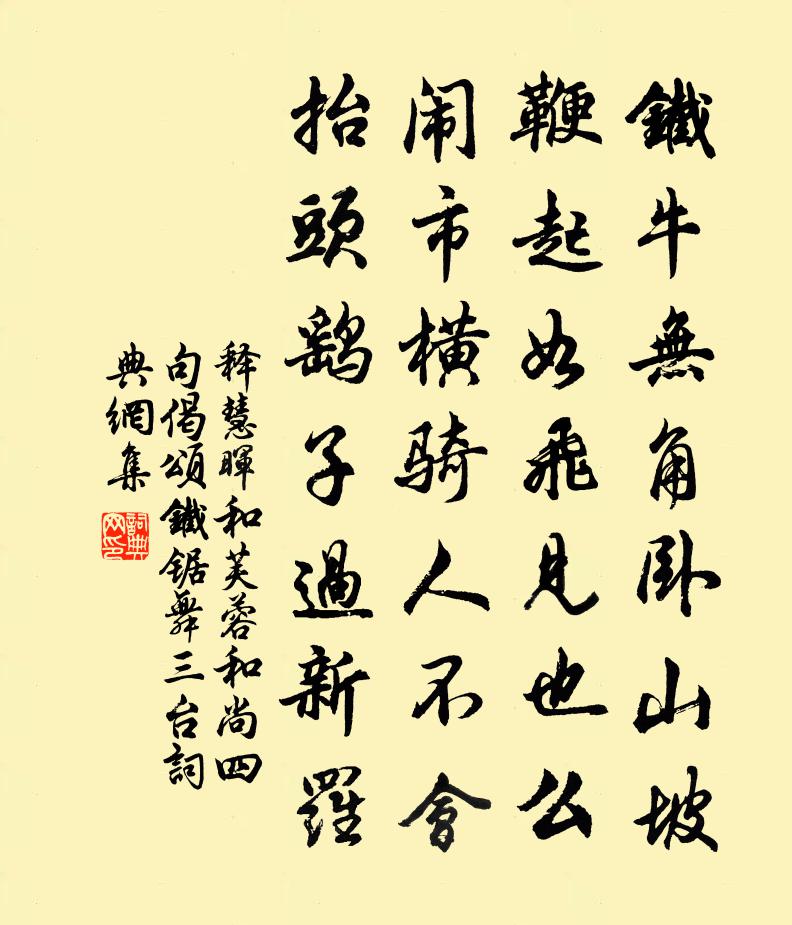 鐵牛無角卧山坡
鞭起如飛見也么
闹市横骑人不會
抬頭鹞子過新羅
释慧暉和芙蓉和尚四
句偈頌鐵锯舞三台詞
典網集
詞典
网印